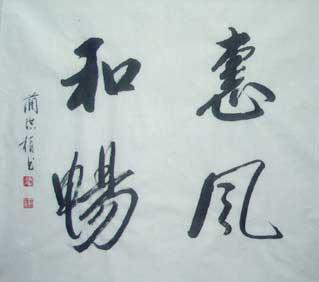 惠風
和暢